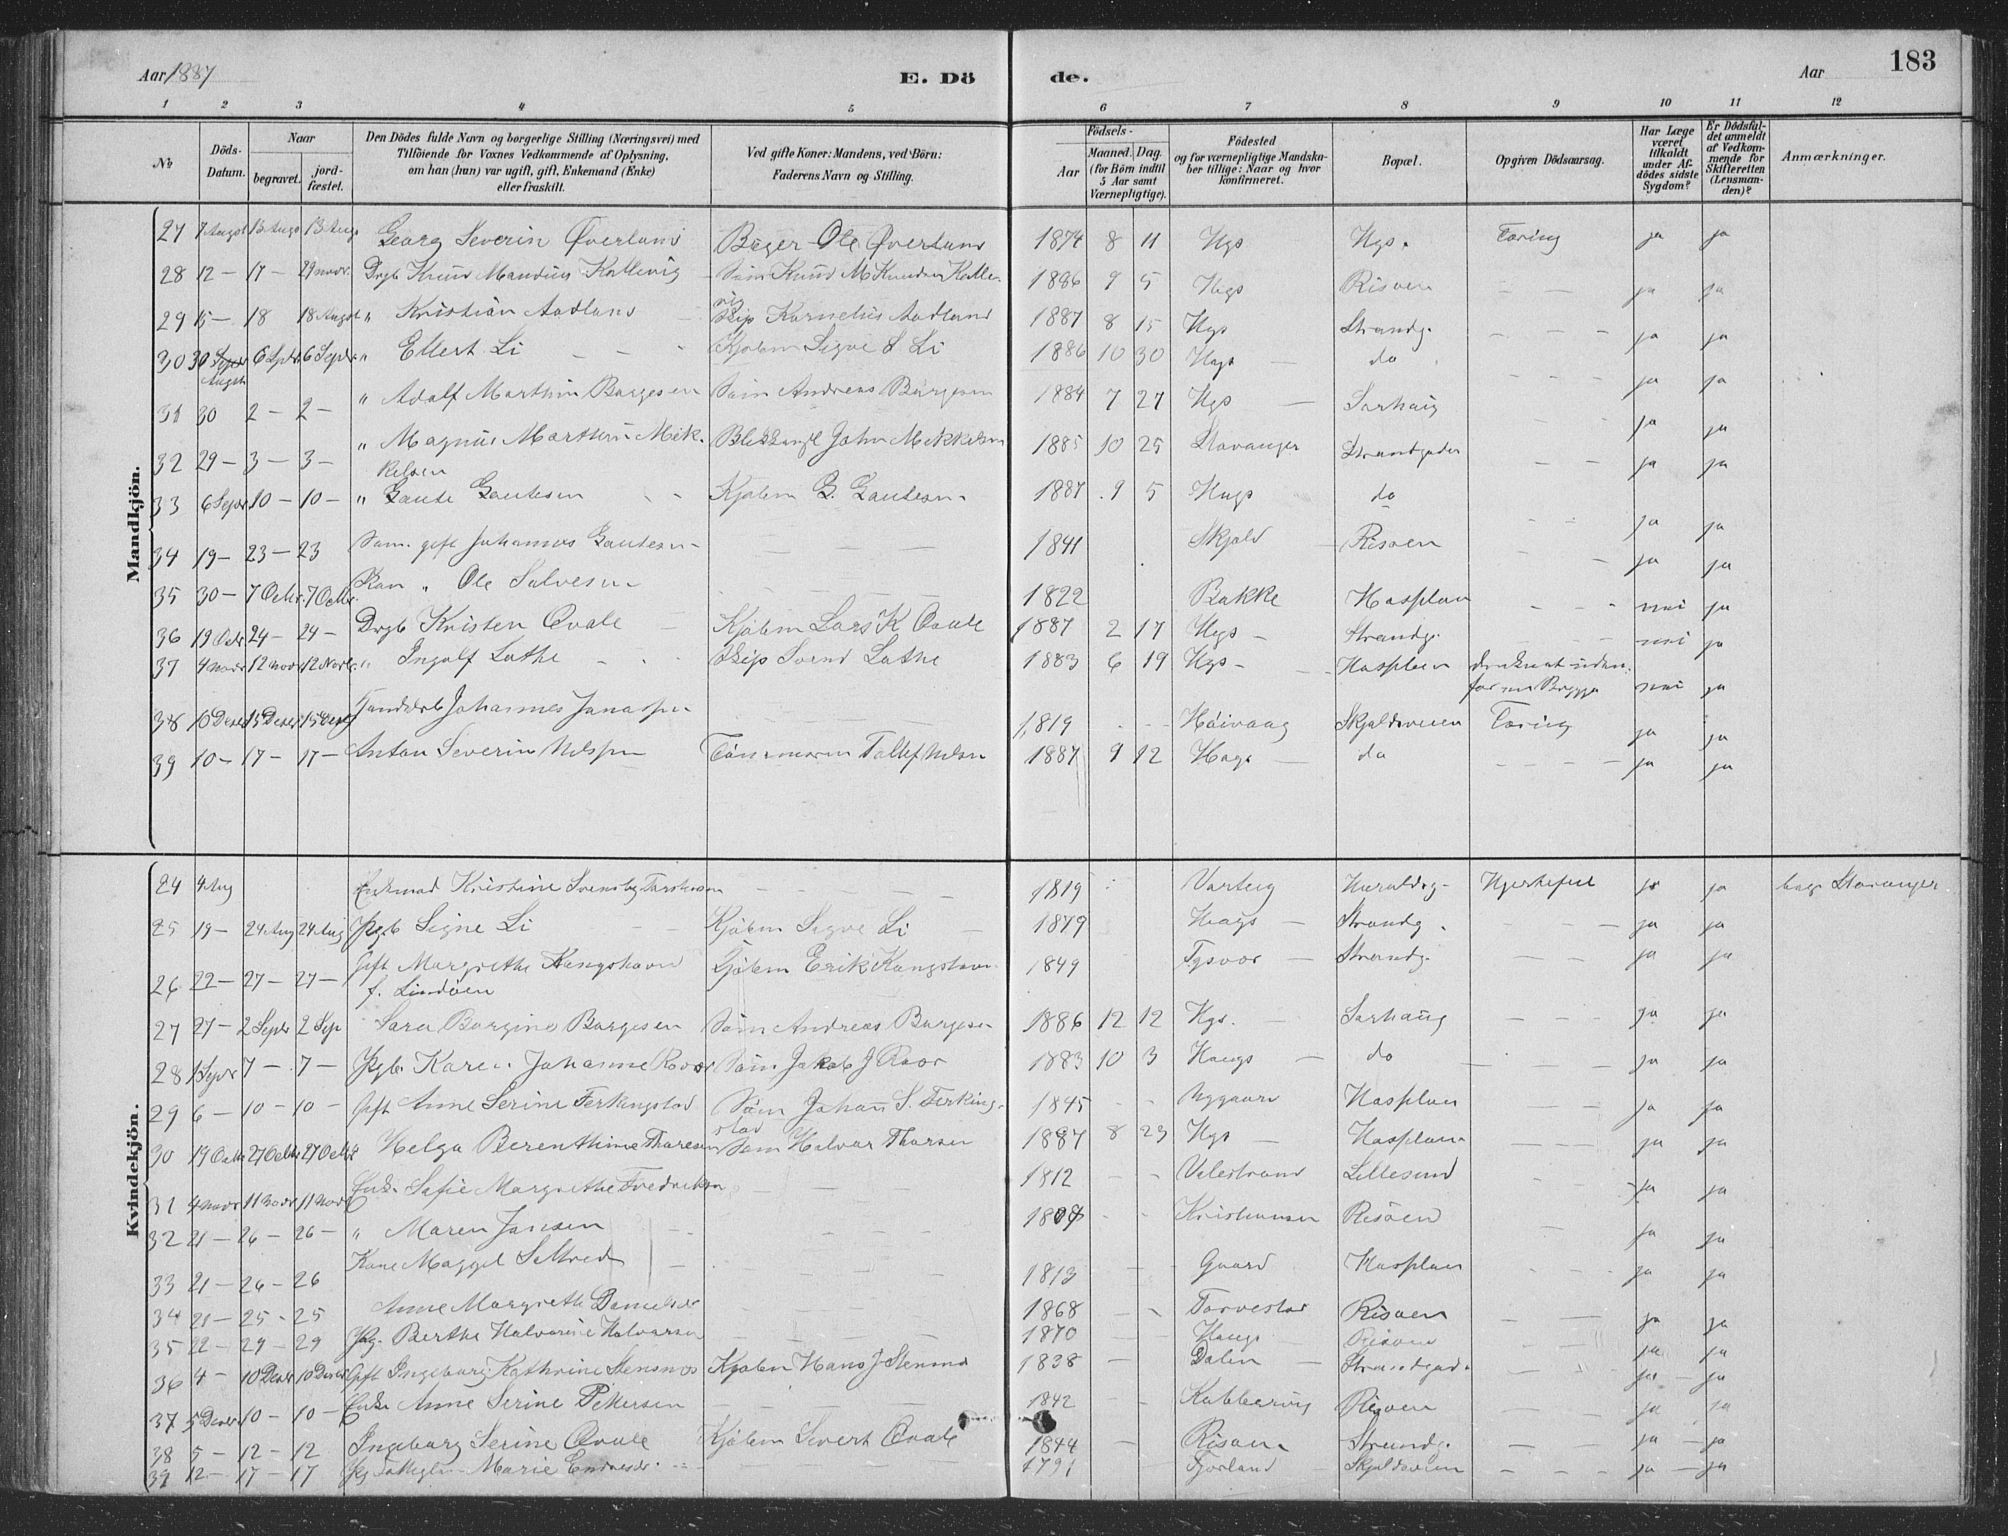 Aar 1887
E. Dö
de.
Aar
183
1 2 3 4 5 6 7 8 9 10 11 12
No
Döds-Datum.
Naar
begravet.
jord-fæstet.
Den Dödes fulde Navn og borgerlige Stilling (Næringsvei) med
Tilföiende for Voxnes Vedkommende af Oplysning,
om han (hun) var ugift, gift, Enkemand (Enke)
eller fraskilt.
Ved gifte Koner: Mandens, ved Börn:
Faderens Navn og Stilling.
Födsels-
Aar
Maaned. Dag
(for Börn indtil
5 Aar samt
Værnepligtige).
Födested
og for værnepligtige Mandska-
ber tillige: Naar og hvor
konfirmeret.
Bopæl.
Opgiven Dödsaarsag.
Har Læge
været
tilkaldt
under Af-
dödes sidste
Sygdom?
Er Dödsfal-
det anmeldt
af Vedkom-
mende for
Skifteretten
(Lensman-
den)?
Anmærkninger.
Mandkjön.
27 7 Augst 13 Augst 13 Aug. Georg Severin Överland Bøger Ole Överland 1874 8 11 Hgs Hgs. Tæring ja ja
28 12 — 17 — 29 novr. Drgb Knud Mandius Kallevig Søm Knud M Knudsen Kalle-
vig 1886 9 5 Hgs Risøen — — ja ja
29 15 — 18 18 Augst " Kristian Aadland Skip Kornelius Aadland 1887 8 15 Hgs Strandg. — — — ja ja
30 30 Augst 6 Sptr 6 Septr " Ellert Li Kjøbm Sigve S Li 1886 10 30 Hgs do — — — ja ja
31 30 2 — 2 — " Adolf Marthin Børgesen Søm Andreas Børgesen 1884 7 27 Hgs Sørhaug ja ja
32 29 — 3 — 3 — " Magnus Marthin Mik-
kelsen John Mikkelsen 1885 10 25 Stavanger Strandgaden — — ja ja
33 6 Septr 10 — 10 — " Gaute Gautesen Kjøbm G. Gautesen 1887 9 5 Hgs do — — — ja ja
34 19 — 23 — 23 Søm. gift Johannes Gautesen — — — 1841 Skjold Risøen ja ja
35 30 — 7 Octbr. 7 Octbr. Ole Salvesen — — — 1822 Bakke Hasselan — — — nei ja
36 19 Octr 24 — 24 — Drgb Kristen Qvale Kjøbm Lars K Qvale 1887 2 17 Hgs Strandg. nei ja
37 4 novr 12 novr 12 Novr. " Ingolf Lothe Skip Svend Lothe 1883 6 19 Hgs Hasseløen druknet uden-
for en Brygge nei ja
38 10 Decr 15 Decr 15 Decbr Johannes Jonassen 1819 Høivaag Skjoldaveien Tæring ja ja
39 10 — 17 — 17 — Anton Severin Nilssen Tollef Nilsen 1887 9 12 Haugs do — — — ja ja
Kvindekjön.
24 4 Aug Kristine Svensby 1819 Haraldsg. Hjertefeil ja ja Stavanger
25 19 — 24 Aug 24 Aug Pgb Signe Li Kjøbm Sigve Li 1879 Haugs Strandg. — — — ja ja
26 22 — 27 — 27 — Gift Margrethe Kongshavn
f. Lindøen Kjøbm Erik Kongshavn 1849 Tysvær Strandg. — — — ja ja
27 27 — 2 Septr 2 Sep Sara Bergine Børgesen Søm Andreas Børgese- 1886 12 12 Hgs. Sørhaug — — — ja ja
28 1 Septr 7 — 7 — Pgb. Karen Johanne Roor Søm Jakob J Roor 1883 10 3 Haugs do — — — ja ja
29 6 — 10 — 10 — Gift Anne Serine Ferkingstad Søm Johan S. Ferking-
stad 1845 Nygaard Hasselan — — — ja ja
30 19 Octbr 27 Octbr 27 Octbr Helga Berenthine Thoresen Søm Halvor Thorsen 1887 8 23 Hgs Hasselan — — — ja ja
31 4 novr 11 novr 11 novr Enke Sofie Margrethe Fredriksen 1812 Valestrand Lillesund ja ja
32 21 — 26 — 26 — " Maren Jansen — — Kristiansen Risøen — ja ja
33 21 — 26 — 26 Kone Maggel — — — 1813 Gaard Hasselan — — — ja ja
34 21 — 25 — 25 Anne Margrethe — — — 1868 Torvestad Risøen — — ja ja
35 22 — 29 — 29 Pg. Berthe Halvorine Halvorsen — — — 1870 Haugs Risøen — — ja ja
36 4 — 10 Decbr 10 Decbr Gift Ingeborg Kathrine Stensnes Kjøbm Hans J Stensnes 1838 Dalen Strandgad. — — ja ja
37 5 Decbr 10 — 10 — Enke Anne Serine Pettersen — — — 1842 Risøen — — ja ja
38 5 — 12 — 12 Ingeborg Serine Qvale Kjøbm Sivert Qvale 1844 Risøen Strandg. — — — ja ja
39 12 — 17 — 17 Marie 1791 Skjoldaveien — — — ja ja